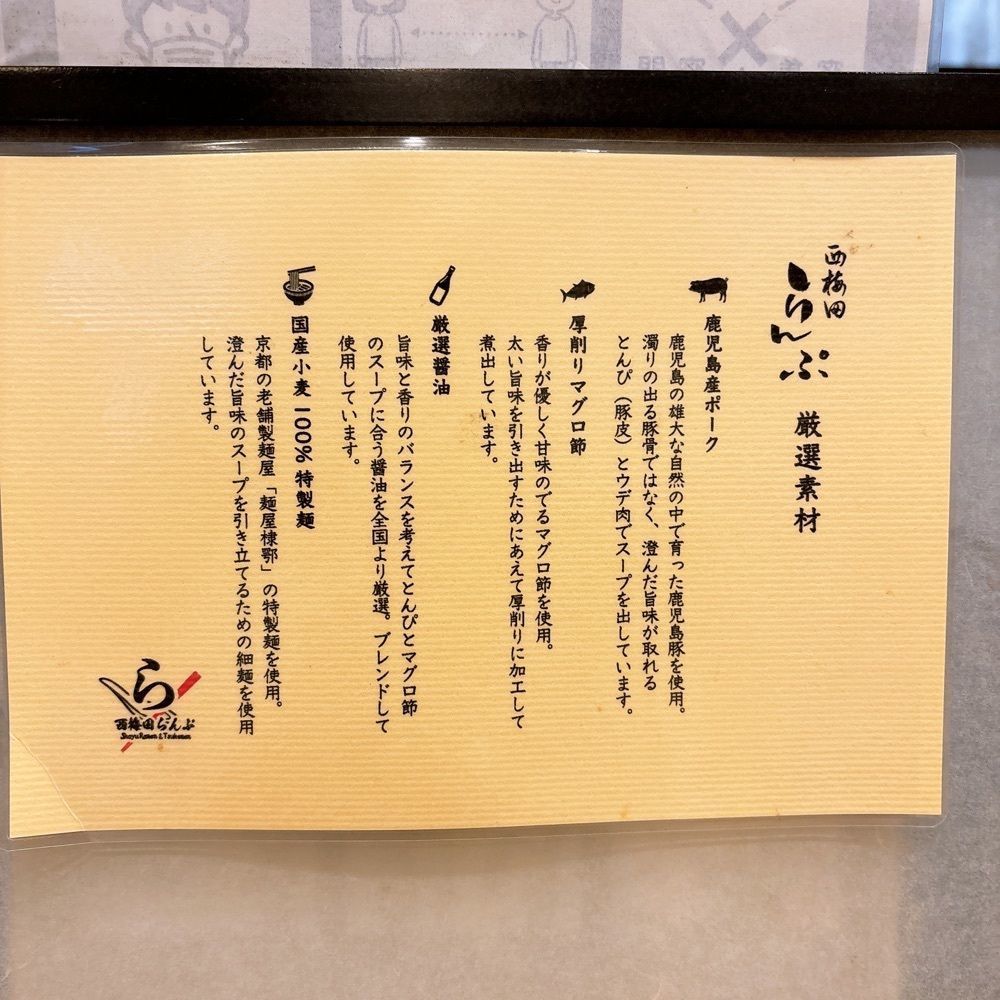 西梅田
らんぷ 厳選素材
鹿児島産ポーク
鹿児島の雄大な自然の中で育った鹿児島豚を使用。
濁りの出る豚骨ではなく、澄んだ旨味が取れる
とんぴ（豚皮）とウデ肉でスープを出しています。
厚削りマグロ節
香りが優しく甘味のでるマグロ節を使用。
太い旨味を引き出すためにあえて厚削りに加工して
煮出しています。
厳選醤油
旨味と香りのバランスを考えてとんぴとマグロ節
のスープに合う醤油を全国より厳選。ブレンドして
使用しています。
国産小麦 100% 特製麺
京都の老舗製麺屋「麺屋棣鄂」の特製麺を使用。
澄んだ旨味のスープを引き立てるための細麺を使用
しています。
ら
西梅田らんぷ
Shoyu Ramen & Tsukemen